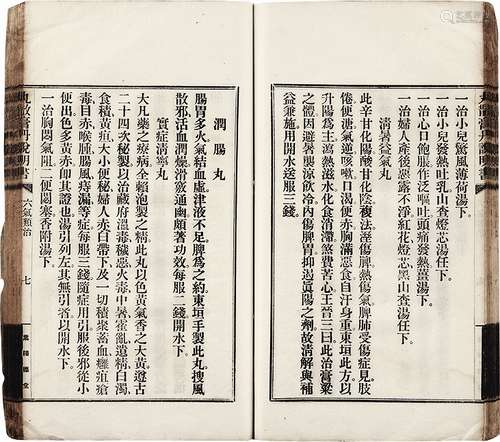 一治小兒驚風薄荷湯下。
一治小兒發熱吐乳山查燈芯湯任下。
一治心口飽脹作泛嘔吐頭痛發熱薑湯下。
一治婦人產後惡露不淨紅花燈芯黑山查湯任下。
清暑益氣丸
此辛甘化陽酸甘化陰複法產傷脾熱傷氣脾肺受傷症見肢
倦便溏氣逆咳嗽口渴便赤胸滿惡食自汗身重東垣此方以
升陽爲主瀉熱滋水化食消滯煞費苦心王晉三曰此治膏粱
之體因避暑襲涼飲冷內傷脾胃抑遏眞陽之劑故清解與補
益兼施用開水送服三錢。
潤腸丸
腸胃多火氣結血虛津液不足脾爲之約東垣手製此丸搜風
散邪活血潤燥滑竅通幽頗著功效每服二錢開水下。
實症清寧丸
大凡藥之療病全賴泡製之精此丸以色黃氣香之大黃遵古
二十四次秘製以治臟府溫毒穢惡火毒中暑霍亂遺精白濁
食積黃疸大小便秘婦人赤白帶下及一切積聚蓄血癰疽瘡
毒目赤喉腫腸風痔漏等症每服三錢隨症用引服後邪從小
便出色多黃赤卽其證也湯引列左其無引者以開水下。
一治胸悶氣阻二便閉塞香附湯下。
六氣類治
七